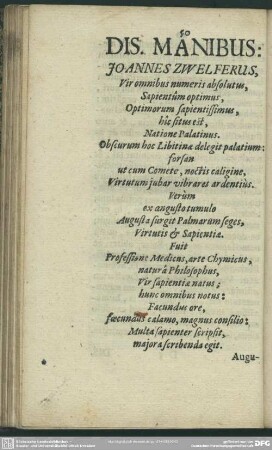 DIS. MANIBUS:
JOANNES ZWELFERUS,
Vir omnibus numeris absolutus,
Sapientûm optimus,
Optimorum sapientissimus,
hîc situs est,
Natione Palatinus.
Obscurum hoc Libitinæ delegit palatium:
forsan
ut cum Comete, noctis caligine,
Virtutum jubar vibraret ardentiùs.
Verùm
ex angusto tumulo
Augusta surgit Palmarum seges,
Virtutis & Sapientiæ.
Fuit
Professione Medicus, arte Chymicus,
naturâ Philosophus,
Vir sapientiæ natus;
hunc omnibus notus:
Facundus ore,
fœcundus calamo, magnus consilio:
Multa sapienter scripsit,
majora scribenda egit.
Augu-